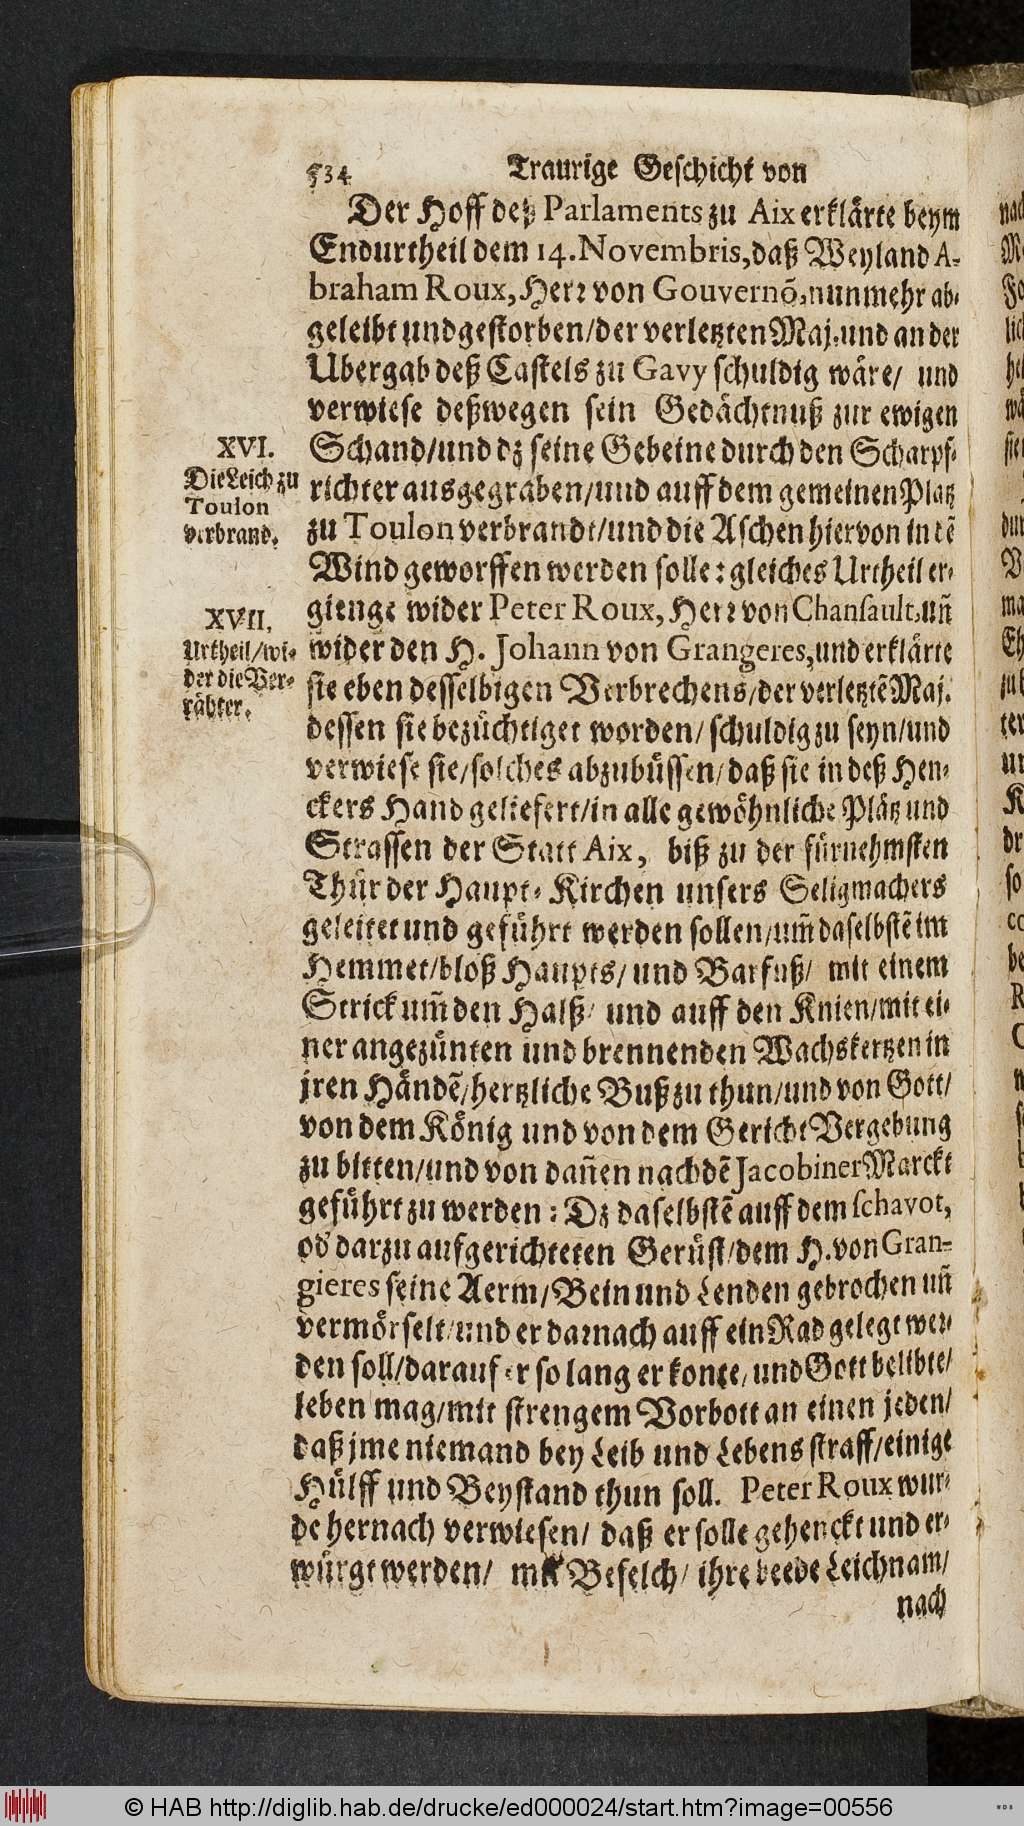 534 Traurige Geschicht von
Der Hoff deß Parlaments zu Aix erklärte beym
Endurtheil dem 14. Novembris, daß Weyland A-
braham Roux, Herr von Gouvernõ, nunmehr ab-
geleibt und gestorben/ der verletzten Maj. und an der
Ubergab deß Castels zu Gavy schuldig wäre/ und
verwiese deßwegen sein Gedächtnuß zur ewigen
XVI.
Die Leich zu
Toulon
verbrand.
Schand/ und dz seine Gebeine durch den Scharpf-
richter ausgegraben/ und auff dem gemeinen Platz
zu Toulon verbrandt/ und die Aschen hiervon in dẽ
Wind geworffen werden solle: gleiches Urtheil er-
XVII.
Urtheil/ wi-
der die Ver-
rähter.
gienge wider Peter Roux, Herr von Chansault, uñ
wider den H. Johann von Grangeres, und erklärte
sie eben desselbigen Verbrechens/ der verletztẽ Maj.
dessen sie bezüchtiget worden/ schuldig zu seyn/ und
verwiese sie/ solches abzubüssen/ daß sie in deß Hen-
ckers Hand geliefert/ in alle gewöhnliche Plätz und
Strassen der Statt Aix, biß zu der fürnehmsten
Thür der Haupt-Kirchen unsers Seligmachers
geleitet und geführt werden sollen/ um̃ daselbstẽ im
Hemmet/ bloß Haupts/ und Barfuß/ mit einem
Strick um̃ den Halß/ und auff den Knien/ mit ei-
ner angezünten und brennenden Wachskertzen in
jren Händẽ/ hertzliche Buß zu thun/ und von Gott/
von dem König und von dem Gericht Vergebung
zu bitten/ und von dañen nach dẽ Jacobiner Marckt
geführt zu werden: Dz daselbstẽ auff dem schavot,
od' darzu aufgerichteten Gerüst/ dem H. von Gran-
gieres seine Aerm/ Bein und Lenden gebrochen uñ
vermörselt/ und er darnach auff ein Rad gelegt wer-
den soll/ darauf er so lang er konte/ und Gott belibte/
leben mag/ mit strengem Vorbott an einen jeden/
daß jme niemand bey Leib und Lebens straff/ einige
Hülff und Beystand thun soll. Peter Roux wur-
de hernach verwiesen/ daß er solle gehenckt und er-
würgt werden/ mit Befelch/ ihre beede Leichnam/
nach
© HAB http://diglib.hab.de/drucke/ed000024/start.htm?image=00556